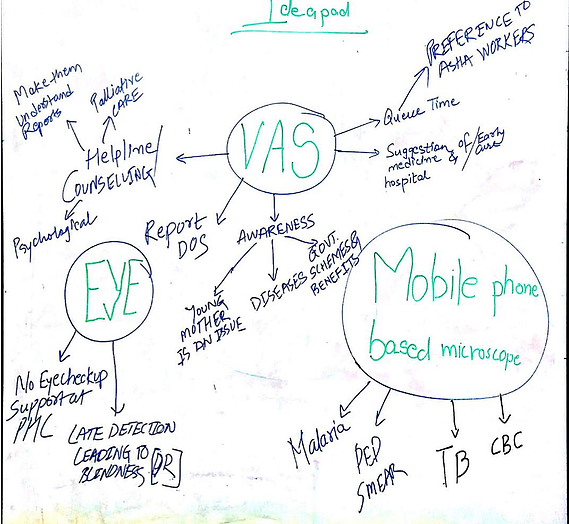 Ideapad
PREFERENCE TO
ASHA WORKERS
Make them
understand
Reports
Palliative
CARE
Queue Time
VAS
Helpline/
COUNSELLING
Suggestion of/Early
medicine & Cure
hospital
Psychological
Report
DOS
AWARENESS
YOUNG
MOTHER
IS AN ISSUE
DISEASES
GOVT.
SCHEMES &
BENEFITS
EYE
Mobile phone
based microscope
No Eyecheckup
Support at
PHC
LATE DETECTION
LEADING TO
BLINDNESS [DR]
Malaria
PED
SMEAR
TB
CBC